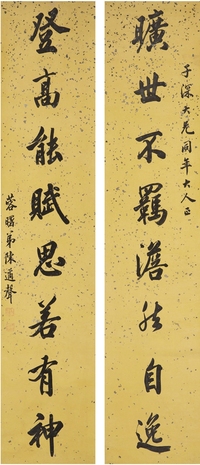 子深大兄同年大人正
曠世不羈澹然自逸
登高能賦思若有神
蓉曙弟陳遹聲